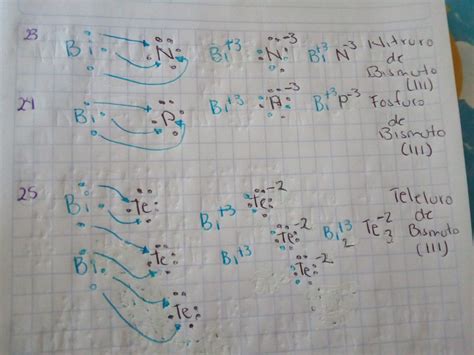 23 Bi N Bi+3 N-3 Bi+3 N-3 Nitruro
de
Bismuto
(III)
24 Bi P Bi+3 A-3 Bi+3 P-3 Fosfuro
de
Bismuto
(III)
25 Bi Te Bi+3 Te-2 Teleluro
de
Te-2 Bi2+3 Te3-2 Bismuto
(III)
Bi Te Bi+3 Te-2
Te